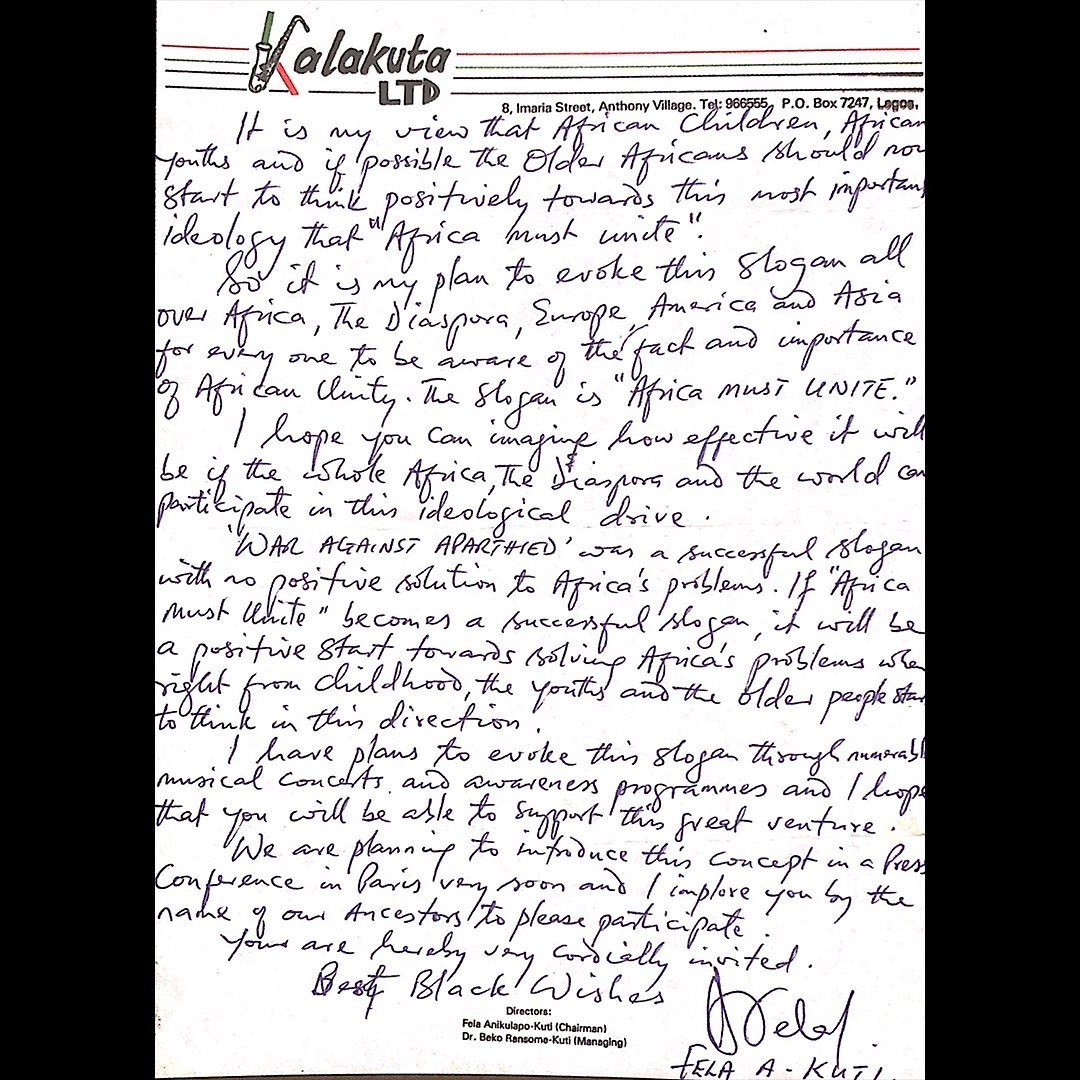 Kalakuta
LTD
8, Imaria Street, Anthony Village. Tel: 966555, P.O. Box 7247, Lagos.
It is my view that African Children, African
youths and if possible the Older Africans should now
start to think positively towards this most important
ideology that "Africa must unite".
So it is my plan to evoke this slogan all
over Africa, The Diaspora, Europe, America and Asia
for every one to be aware of the fact and importance
of African Unity. The slogan is "Africa MUST UNITE."
I hope you can imagine how effective it will
be if the whole Africa, The Diaspora and the world can
participate in this ideological drive.
'WAR AGAINST APARTHIED' was a successful slogan
with no positive solution to Africa's problems. If "Africa
must Unite" becomes a successful slogan, it will be
a positive start towards solving Africa's problems when
right from childhood, the youths and the older people start
to think in this direction.
I have plans to evoke this slogan through numerabl
musical concerts, and awareness programmes and I hope
that you will be able to support this great venture.
We are planning to introduce this concept in a Press
Conference in Paris very soon and I implore you by the
name of our Ancestors to please participate.
Your are hereby very cordially invited.
Best Black Wishes
Directors:
Fela Anikulapo-Kuti (Chairman)
Dr. Beko Ransome-Kuti (Managing)
Fela
FELA A - KUTI.